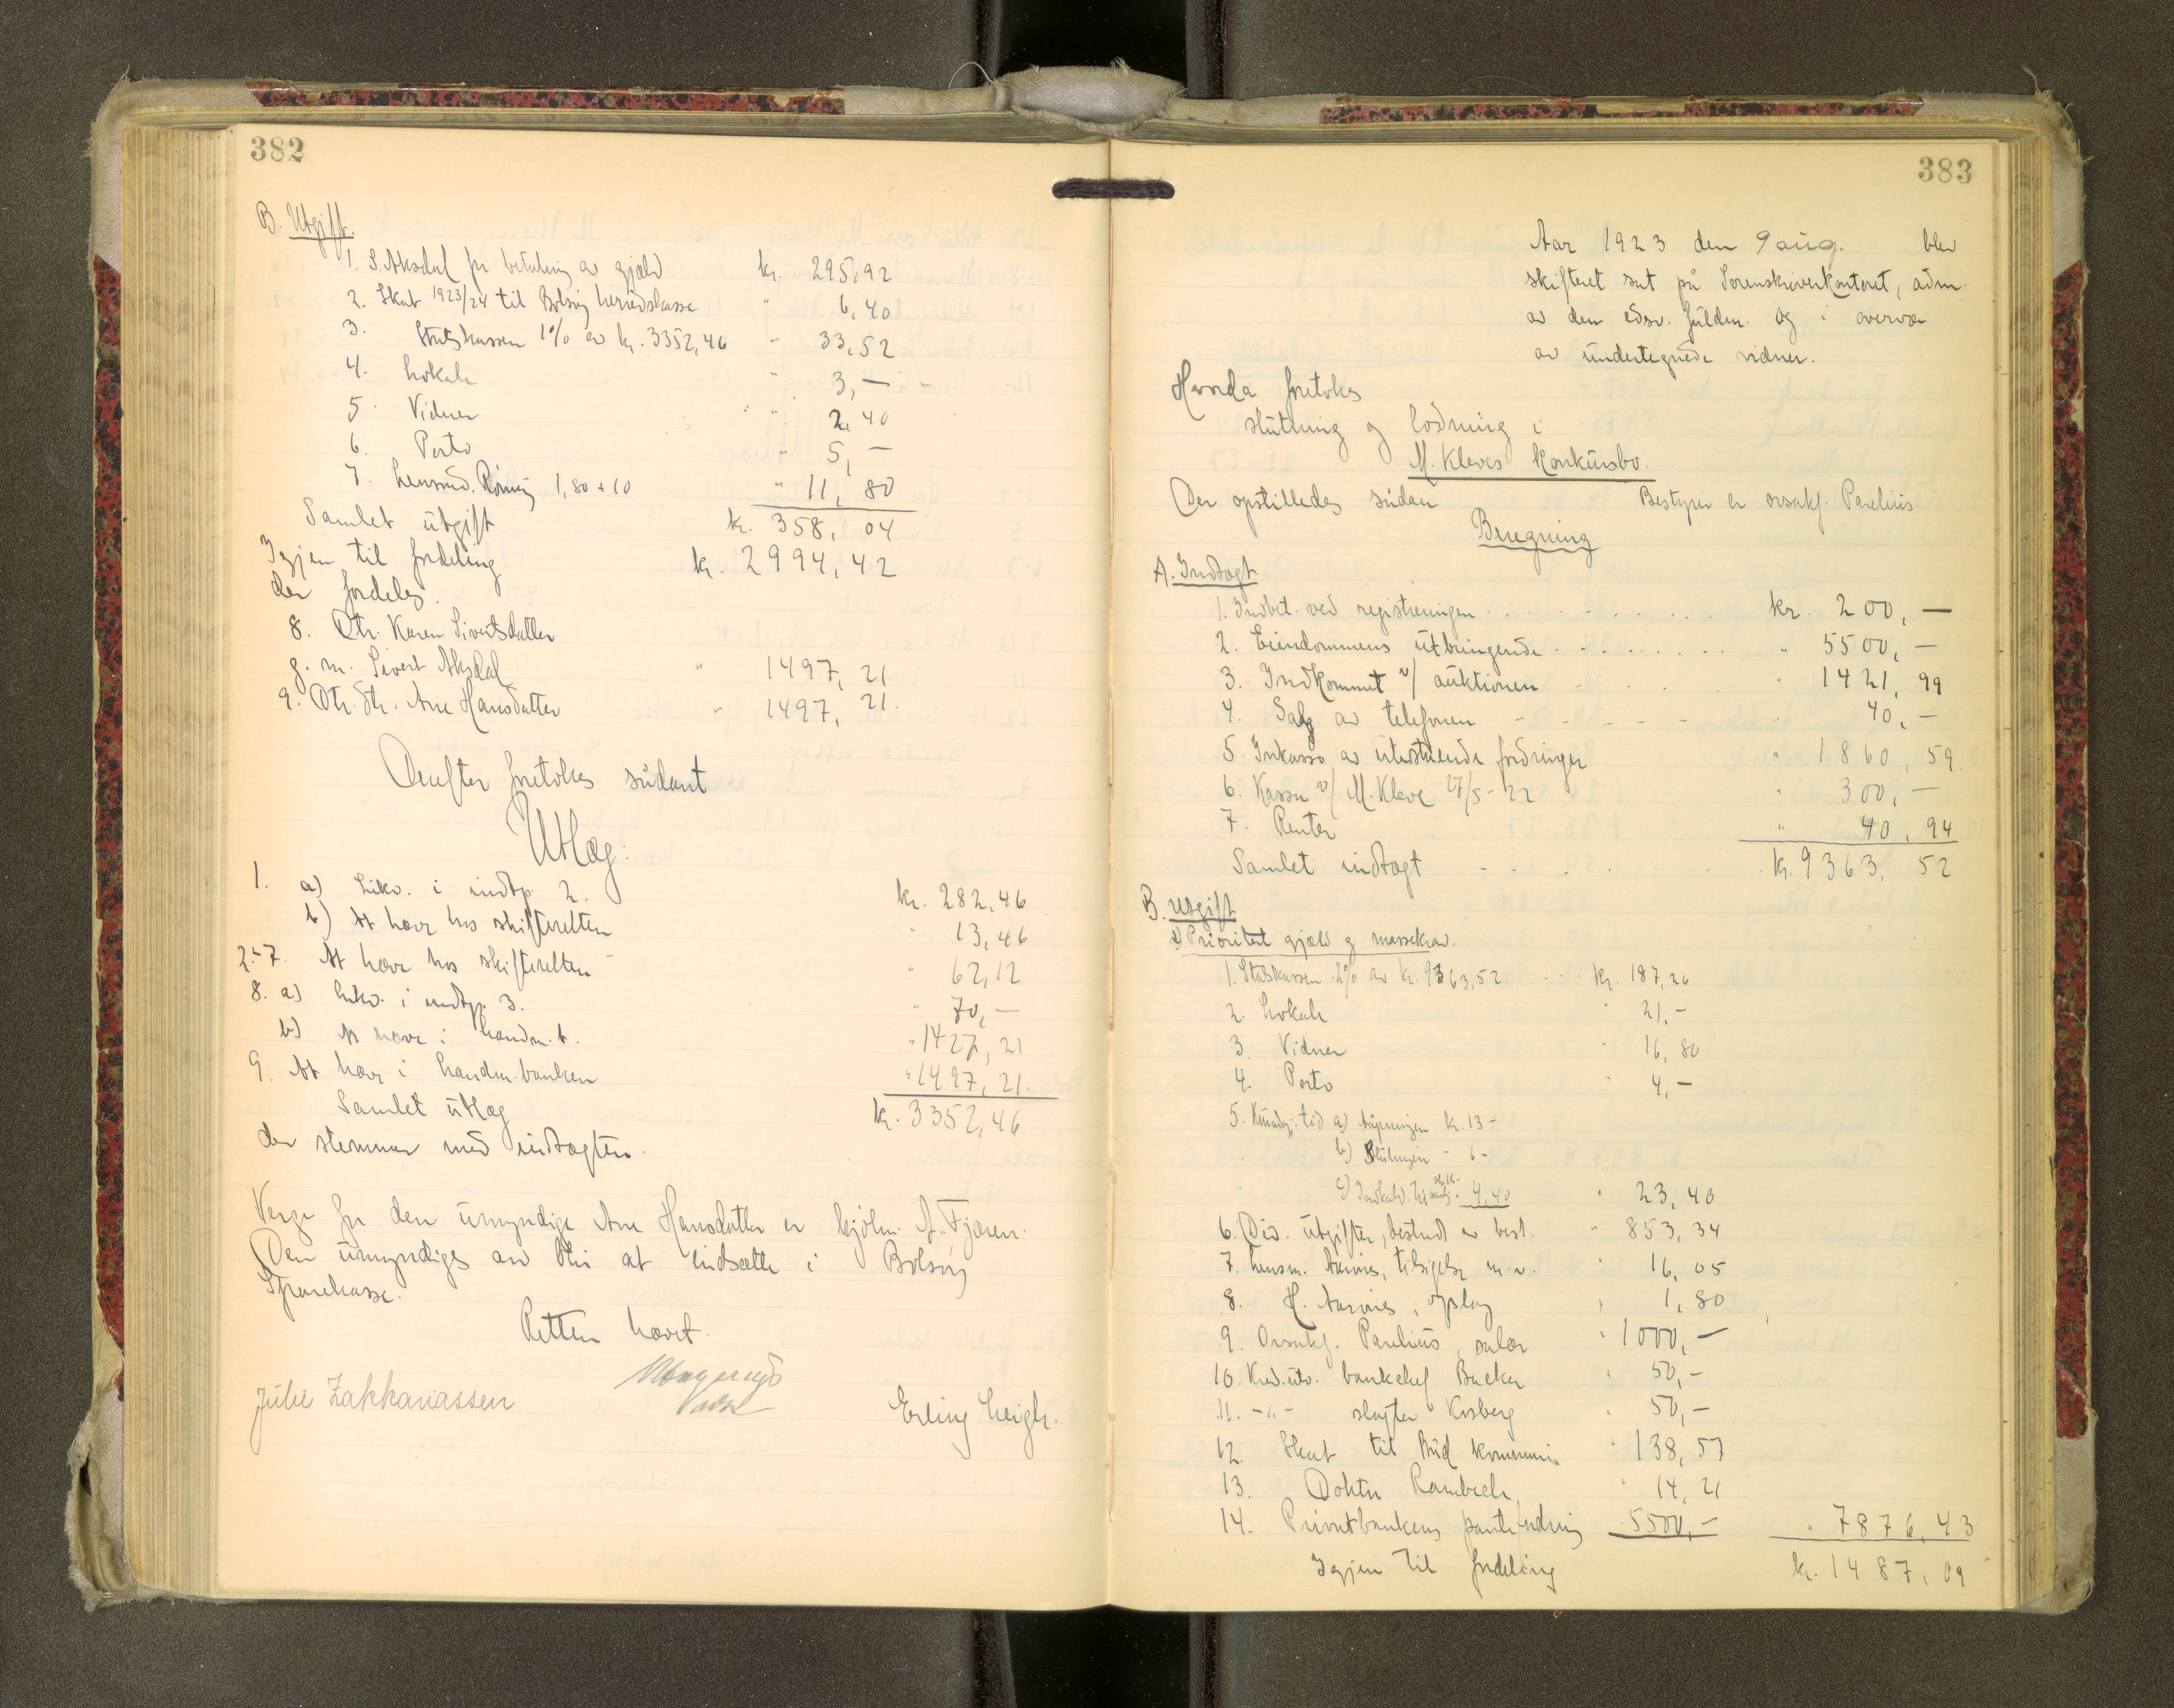 382
B. Utgift.
1. S. Aksdal for betaling av gjæld kr. 295,92
2. Skat 1923/24 til Bolsøy herredskasse " 6,40
3. Statskassen 1% av kr. 3352,46 " 33,52
4. Lokale " 3,—
5. Vidner " 2,40
6. Porto " 5,—
7. Lensmd. Röning 1,80 + 10 " 11,80
Samlet utgift kr. 358,04
Igjen til fordeling kr. 2994,42
der fordeles.
8. Dtr. Karen Sivertsdatter
g. m. Sivert Aksdal " 1497,21
9. Dtr. dtr. Ane Hansdatter " 1497,21.
Derefter foretokes sådant
Utlæg:
1. a) Likv. i indtp. 2. kr. 282,46
b) At hæve hos skifteretten " 13,46
2-7. At hæve hos skifteretten " 62,12
8. a) Likv. i indtp. 3. " 70,—
b) At hæve i handm. b. " 1427,21
9. At hæve i handm. banken " 1497,21.
Samlet utlæg kr. 3352,46
der stemmer med indtægten.
Verge for den umyndige Ane Hansdatter er A. Fjøren.
Den umyndiges arv blir at indsætte i Bolsøy
Sparekasse.
Retten hævet.
Julie Zakkariassen
Erling Leigh.
383
Aar 1923 den 9 aug. blev
skifteret sat på Sorenskriverkontoret, adm.
av den edsv. fuldm. og i overvær
av undertegnede vidner.
Hvorda foretokes
slutning og lodning i
M. Kleves konkursbo.
Der opstilledes sådan Bestyrer er orsakf. Paulius.
Beregning
A. Indtægt
1. Indbet. ved registreringen kr. 200,—
2. Eiendommens utbringende " 5500,—
3. Indkommet v/ auktionen " 1421,99
4. Salg av telefonen " 40,—
5. Inkasso av utestående fordringer " 1860,59
6. Kassa v/ M. Kleve 27/5-22 " 300,—
7. Renter " 40,94
Samlet indtægt kr. 9363,52
B. Utgift
a) Prioritet gjæld og massekrav.
1. Statskassen 2% av kr. 9363,52 kr. 187,26
2. Lokale " 21,—
3. Vidner " 16,80
4. Porto " 4,—
5. Kundgj. tid a) Åpningen kr. 13-
b) Slutningen - 6-
c) Indkald. til 4,40 " 23,40
6. Div. utgifter, bestridt av best. " 853,34
7. Lensm. Aarnes, tilsigelse m.v. " 16,05
8. H. Aarnes, opslag " 1,80
9. Orsakf. Paulius, salær " 1000,—
10. Kred.utv. bankchef Backer " 50,—
11. -"- slagter Kosberg " 50,—
12. Skat til Bud kommune " 138,57
13. Doktor Rambech " 14,21
14. Privatbankens pantefordring 5500,— " 7876,43
Igjen til fordeling kr. 1487,09